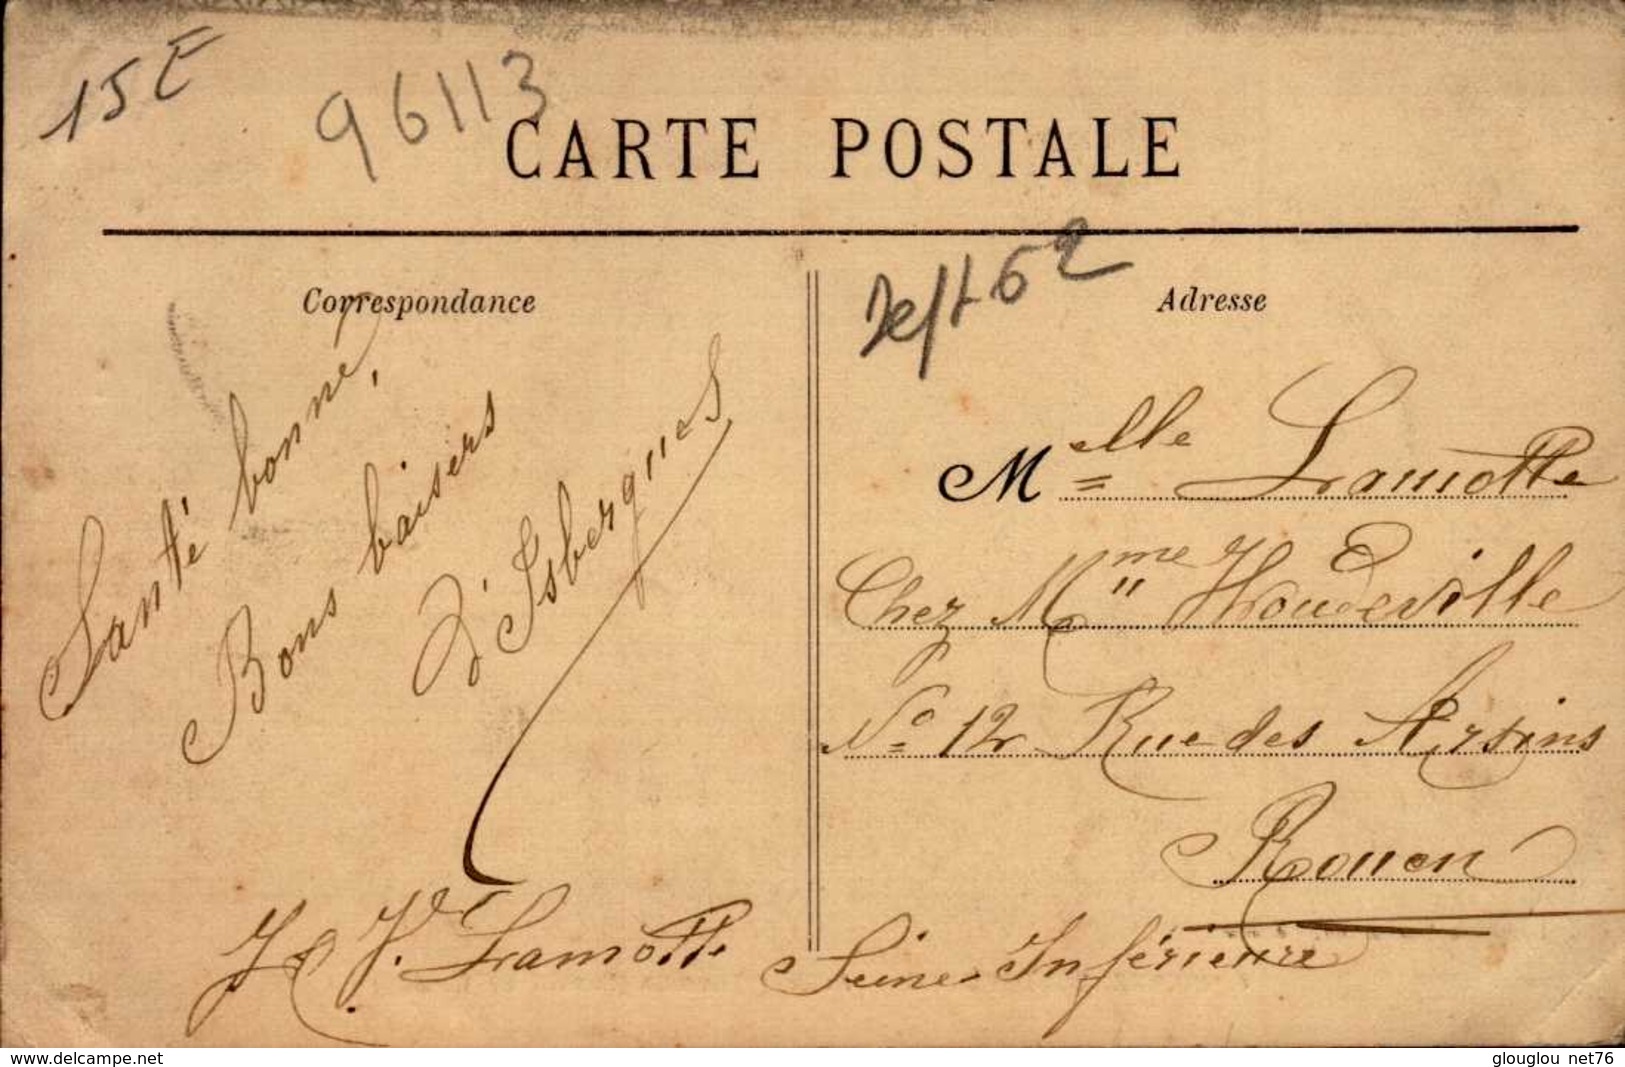 15 E
96113
CARTE POSTALE
Correspondance
Santé bonne,
Bons baisers
d'Isbergues
Lamotte
Dept 62
Adresse
Melle Lamotte
Chez Mme Houdeville
No 12 Rue des Arsins
Rouen
Seine-Inférieure
www.delcampe.net
glouglou_net76